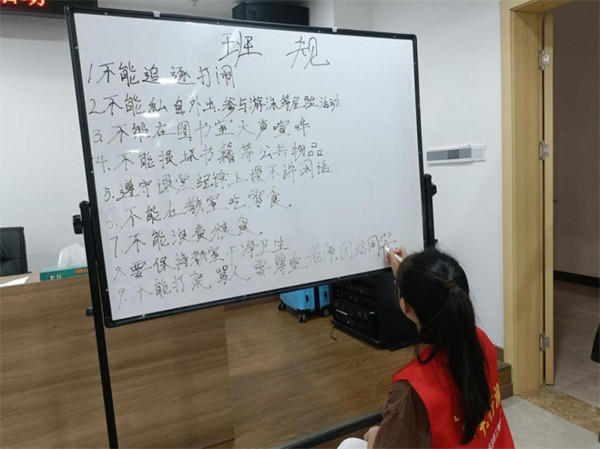 班 规
1.不能追逐打闹
2.不能私自外出,参与游泳等危险活动.
3.不能在图书室大声喧哗
4.不能损坏书籍等公共物品
5.遵守课堂纪律上课不许闲话.
6.不能在教室吃零食.
7.不能浪费粮食.
8.要保持教室干净卫生
9.不能打架,骂人,要尊重老师,团结同学